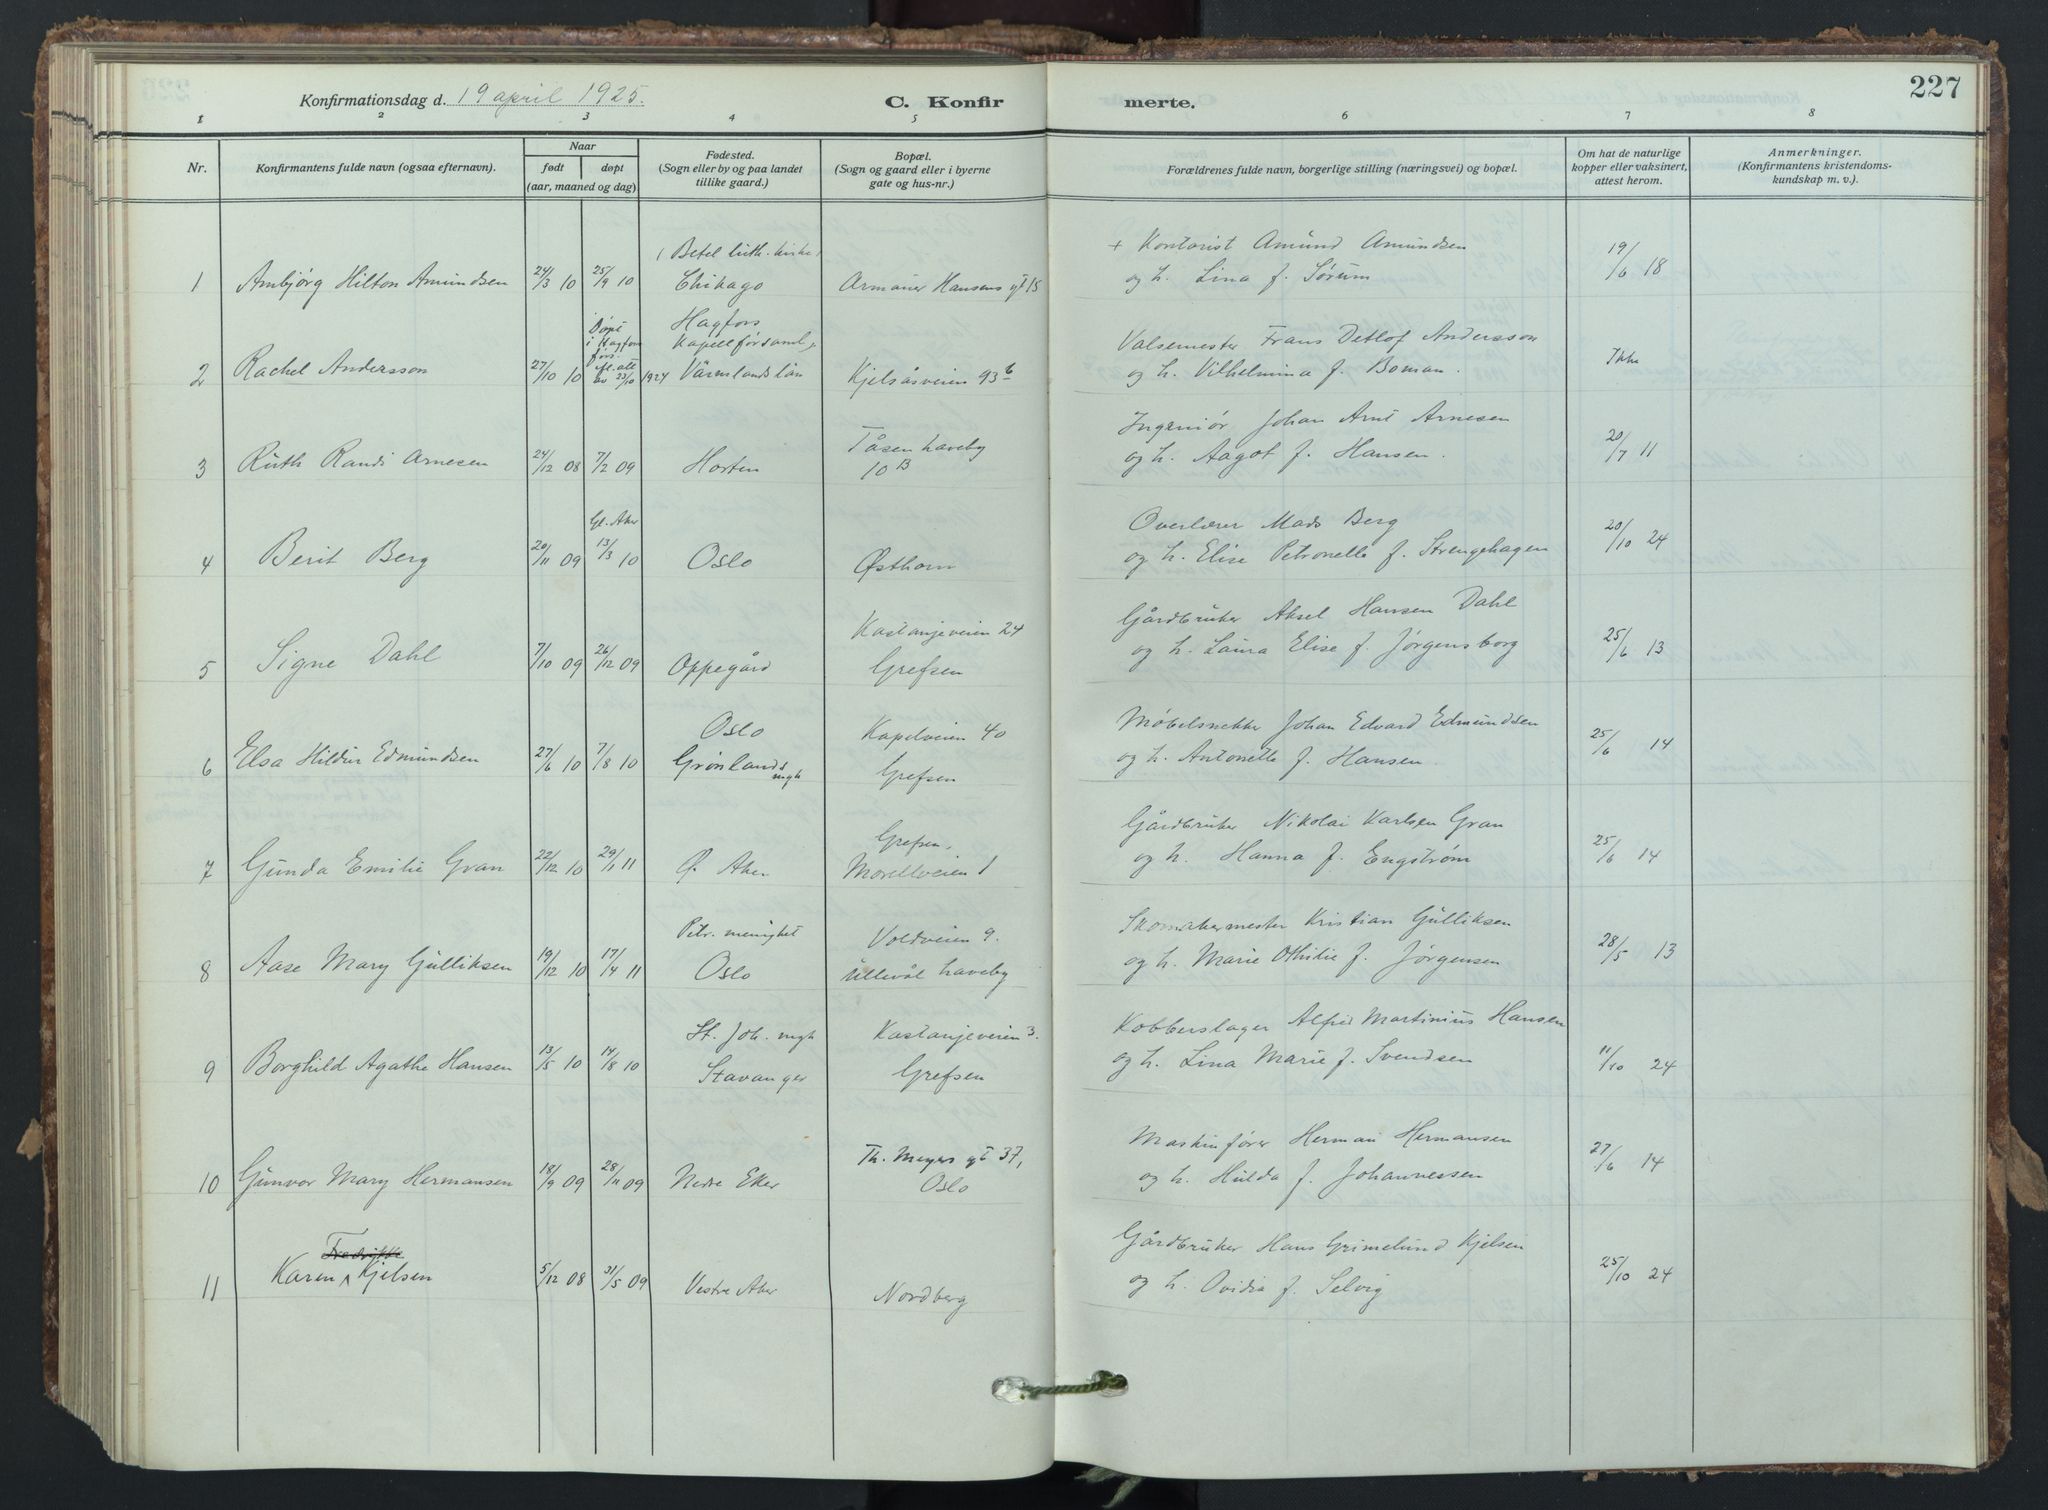 Konfirmationsdag d. 19 april 1925.
C. Konfir
merte.
227
1 2 3 4 5 6 7 8
Nr.
Konfirmantens fulde navn (ogsaa efternavn).
Naar
født
døpt
(aar, maaned og dag)
Fødested.
(Sogn eller by og paa landet
tillike gaard.)
Bopæl.
(Sogn og gaard eller i byerne
gate og hus-nr.)
Forældrenes fulde navn, borgerlige stilling (næringsvei) og bopæl.
Om hat de naturlige
kopper eller vaksinert,
attest herom.
Anmerkninger.
(Konfirmantens kristendoms-
kundskap m. v.).
1 Ambjørg Hilton Amundsen 24/3 10 25/9 10
Betel luth. kirke
Chikago
Armauer Hansens gt 15
+ Kontorist Amund Amundsen
og h. Lina f. Sørum
19/6 18
2 Rachel Andersson 27/10 10
Døpt
i Hagfors
av 23/10 1924
Hagfors
Kapellförsaml.
Värmlands län
Kjelsåsveien 93 b
Valsemester Frans Detlof Andersson
og h. Vilhelmina f. Boman.
Ikke
3 Ruth Randi Arnesen 24/12 08 7/2 09
Horten
Tåsen haveby
10 B
Ingeniør Johan Arnt Arnesen
og h. Aagot f. Hansen.
20/7 11
4 Berit Berg 20/11 09
Gl. Aker
13/3 10
Oslo
Østhorn
Overlærer Mads Berg
og h. Elise Petronelle f. Strengehagen
20/10 24
5 Signe Dahl 7/10 09 26/12 09
Oppegård
Kastanjeveien 24
Grefsen
Gårdbruker Aksel Hansen Dahl
og h. Laura Elise f. Jørgensborg
25/6 13
6 Elsa Hildur Edmundsen 27/6 10 7/8 10
Oslo
Grønlands
mgh
Kapelveien 40
Grefsen
Møbelsnekker Johan Edvard Edmundsen
og h. Antonette f. Hansen
25/6 14
7 Gunda Emilie Gran 22/12 10 29/1 11
Ø. Aker
Grefsen,
Morellveien 1
Gårdbruker Nikolai Karlsen Gran
og h. Hanna f. Engstrøm
25/6 14
8 Aase Mary Gulliksen 19/12 10 17/4 11
Petr. menighet
Oslo
Voldveien 9.
Ullevål haveby
Skomakermester Kristian Gulliksen
og h. Marie Othilie f. Jørgensen
28/5 13
9 Borghild Agathe Hansen 13/5 10 14/8 10
St. Joh. mgh
Stavanger
Kastanjeveien 3.
Grefsen
Kobberslager Alfred Martinius Hansen
og h. Lina Marie f. Svendsen
11/10 24
10 Gunvor Mary Hermansen 18/9 09 28/11 09
Nedre Eker
Th. Meyers gt 37,
Oslo
Maskinfører Herman Hermansen
og h. Hulda f. Johannessen
27/6 14
11
Fredrikke
Karen Kjelsen 5/12 08 31/5 09
Vestre Aker
Nordberg
Gårdbruker Hans Grimelund Kjelsen
og h. Ovidia f. Selvig
25/10 24